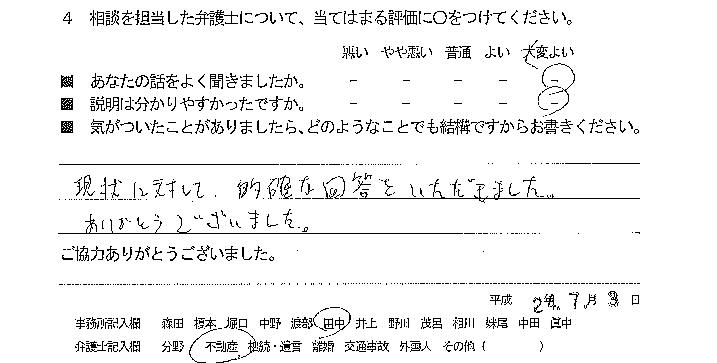 4 相談を担当した弁護士について、当てはまる評価に○をつけてください。
悪い やや悪い 普通 よい 大変よい
あなたの話をよく聞きましたか。 － － － － －
説明は分かりやすかったですか。 － － － － －
気がついたことがありましたら、どのようなことでも結構ですからお書きください。
現状に対して、的確な回答をいただきました。
ありがとうございました。
ご協力ありがとうございました。
平成 24年 7月 3日
事務局記入欄 森田 榎本 堀口 中野 渡部 田中 井上 野川 茂呂 相川 妹尾 中田 眞中
弁護士記入欄 分野 不動産 相続・遺言 離婚 交通事故 外国人 その他（ ）